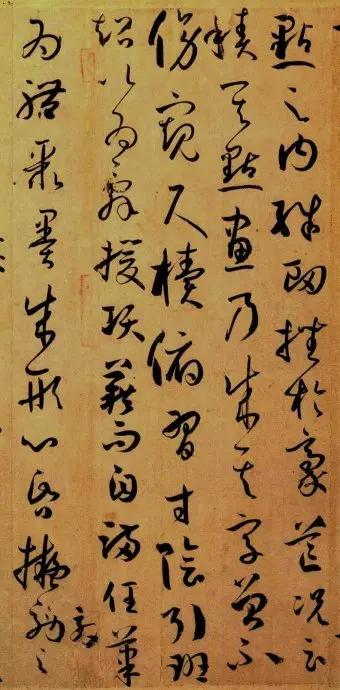 點之內殊衄挫於豪芒況云
積其點畫乃成其字曾不
傍窺尺牘俯習寸陰引班
超以為辭援項籍而自滿任筆
為體聚墨成形心昏擬效之方